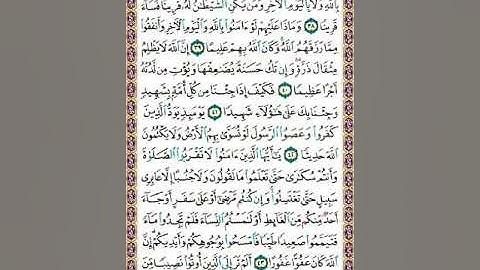 بِٱللَّهِ وَلَا بِٱلْيَوْمِ ٱلْأَخِرِ وَمَن يَكُنِ ٱلشَّيْطَٰنُ لَهُۥ قَرِينًا فَسَآءَ
قَرِينًا ٣٨ وَمَاذَا عَلَيْهِمْ لَوْ ءَامَنُوا۟ بِٱللَّهِ وَٱلْيَوْمِ ٱلْأَخِرِ وَأَنفَقُوا۟
مِمَّا رَزَقَهُمُ ٱللَّهُ وَكَانَ ٱللَّهُ بِهِمْ عَلِيمًا ٣٩ إِنَّ ٱللَّهَ لَا يَظْلِمُ
مِثْقَالَ ذَرَّةٍ وَإِن تَكُ حَسَنَةً يُضَٰعِفْهَا وَيُؤْتِ مِن لَّدُنْهُ
أَجْرًا عَظِيمًا ٤٠ فَكَيْفَ إِذَا جِئْنَا مِن كُلِّ أُمَّةٍۭ بِشَهِيدٍ
وَجِئْنَا بِكَ عَلَىٰ هَٰٓؤُلَآءِ شَهِيدًا ٤١ يَوْمَئِذٍ يَوَدُّ ٱلَّذِينَ
كَفَرُوا۟ وَعَصَوُا۟ ٱلرَّسُولَ لَوْ تُسَوَّىٰ بِهِمُ ٱلْأَرْضُ وَلَا يَكْتُمُونَ
ٱللَّهَ حَدِيثًا ٤٢ يَٰٓأَيُّهَا ٱلَّذِينَ ءَامَنُوا۟ لَا تَقْرَبُوا۟ ٱلصَّلَوٰةَ
وَأَنتُمْ سُكَٰرَىٰ حَتَّىٰ تَعْلَمُوا۟ مَا تَقُولُونَ وَلَا جُنُبًا إِلَّا عَابِرِى
سَبِيلٍ حَتَّىٰ تَغْتَسِلُوا۟ وَإِن كُنتُم مَّرْضَىٰٓ أَوْ عَلَىٰ سَفَرٍ أَوْ جَآءَ
أَحَدٌ مِّنكُم مِّنَ ٱلْغَآئِطِ أَوْ لَٰمَسْتُمُ ٱلنِّسَآءَ فَلَمْ تَجِدُوا۟ مَآءً
فَتَيَمَّمُوا۟ صَعِيدًا طَيِّبًا فَٱمْسَحُوا۟ بِوُجُوهِكُمْ وَأَيْدِيكُمْ إِنَّ
ٱللَّهَ كَانَ عَفُوًّا غَفُورًا ٤٣ أَلَمْ تَرَ إِلَى ٱلَّذِينَ أُوتُوا۟ نَصِيبًا مِّنَ